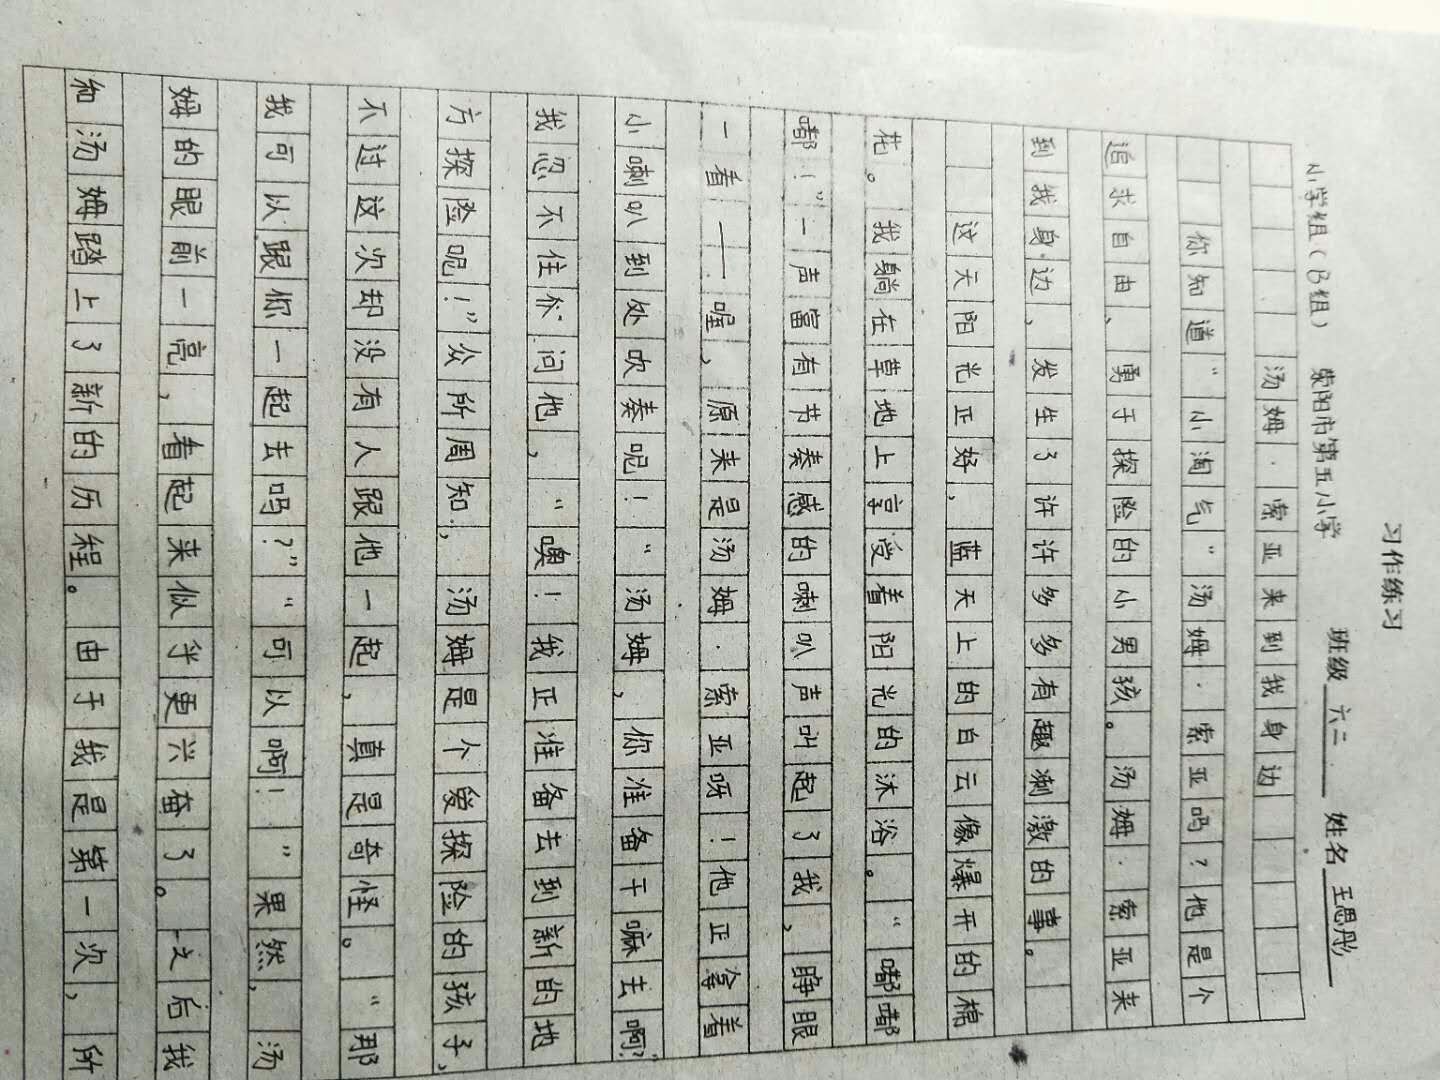 习作练习
小学组（B组） 荥阳市第五小学 班级 六二 姓名 王思彤
汤姆·索亚来到我身边
你知道“小淘气”汤姆·索亚吗？他是个
追求自由、勇于探险的小男孩。汤姆·索亚来
到我身边，发生了许许多多有趣刺激的事。
这天阳光正好，蓝天上的白云像爆开的棉
花。我躺在草地上享受着阳光的沐浴。“嘟嘟
嘟！”一声富有节奏感的喇叭声叫起了我，睁眼
一看——喔，原来是汤姆·索亚呀！他正拿着
小喇叭到处吹奏呢！“汤姆，你准备干嘛去啊？”
我忍不住问他，“噢！我正准备去到新的地
方探险呢！”众所周知，汤姆是个爱探险的孩子，
不过这次却没有人跟他一起，真是奇怪。“那
我可以跟你一起去吗？”“可以啊！”果然，汤
姆的眼前一亮，看起来似乎更兴奋了。之后我
和汤姆踏上了新的历程。由于我是第一次，所